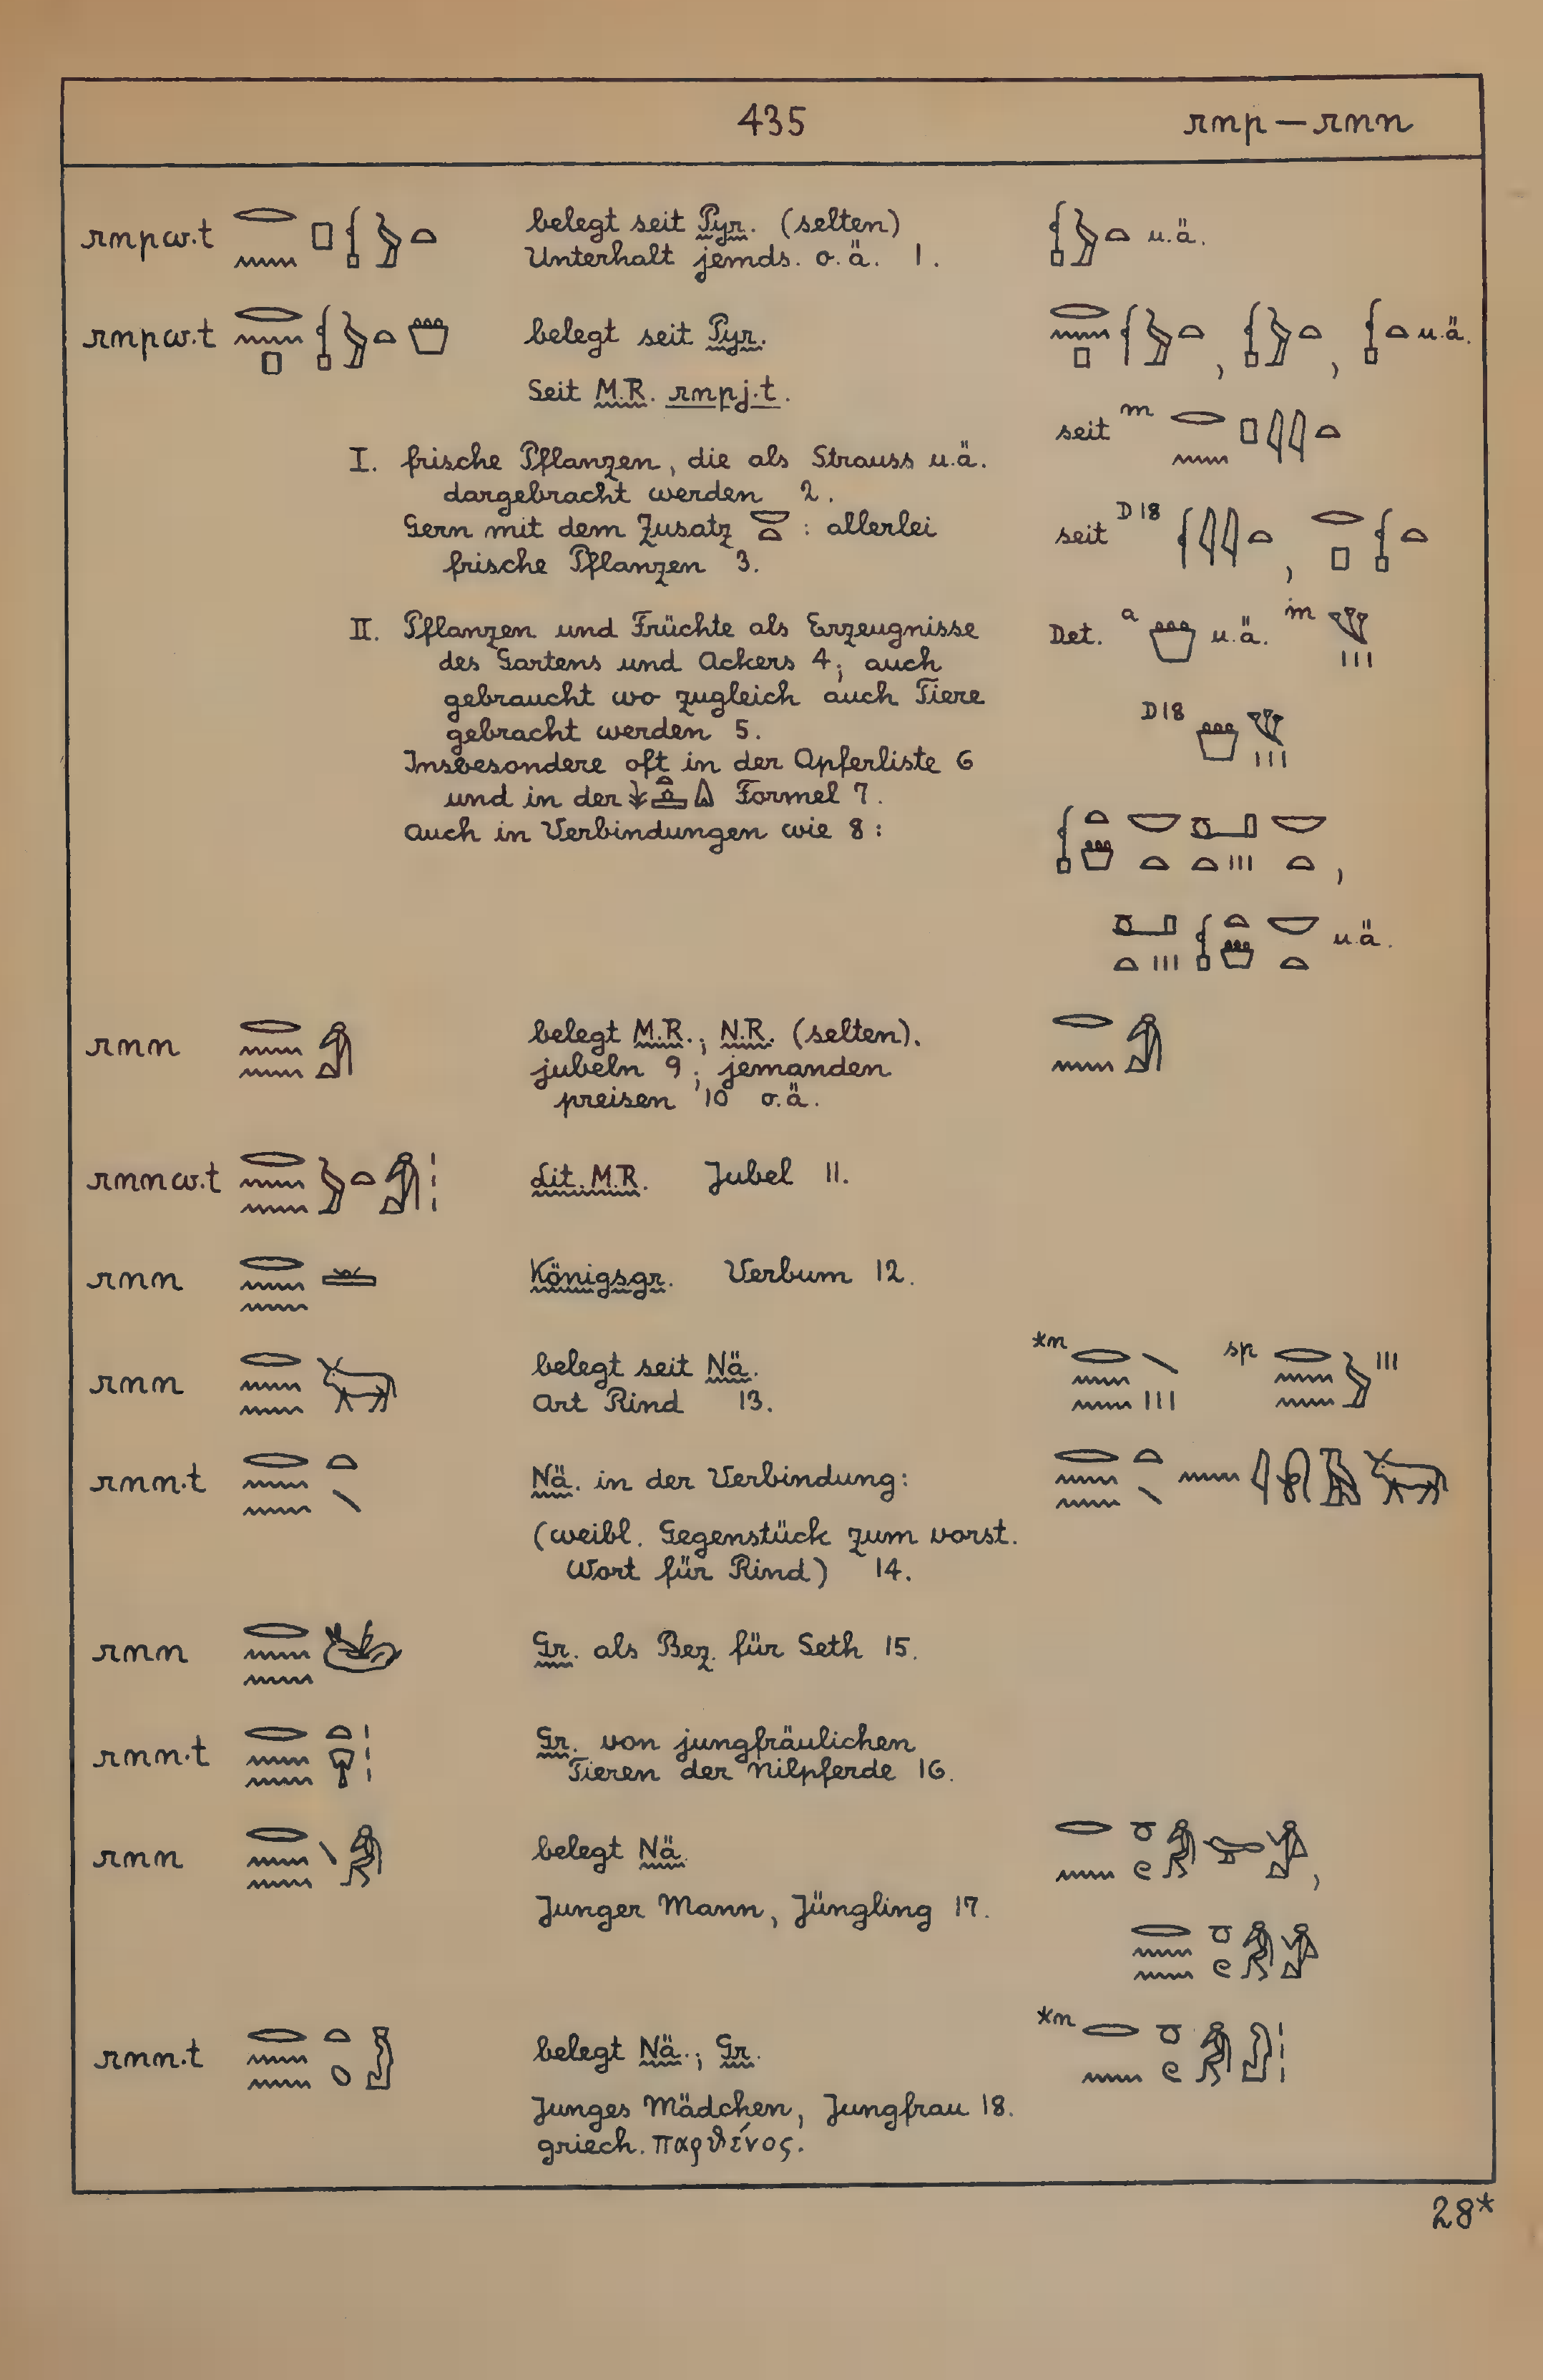 435 rnp — rnn
rnpw.t belegt seit Pyr. (selten) u.ä.
Unterhalt jemds. o.ä. 1.
rnpw.t belegt seit Pyr. , , u.ä.
Seit M.R. rnpj.t.
seit m
I. frische Pflanzen, die als Strauss u.ä.
dargebracht werden 2.
Gern mit dem Zusatz : allerlei
frische Pflanzen 3.
seit D18 ,
II. Pflanzen und Früchte als Erzeugnisse
des Gartens und Ackers 4; auch
gebraucht wo zugleich auch Tiere
gebracht werden 5.
Insbesondere oft in der Opferliste 6
und in der Formel 7.
Auch in Verbindungen wie 8:
Det. a u.ä. m
D18
,
u.ä.
rnn belegt M.R.; N.R. (selten).
jubeln 9; jemanden
preisen 10 o.ä.
rnnw.t Lit. M.R. Jubel 11.
rnn Königsgr. Verbum 12.
rnn belegt seit Nä. *n sp
Art Rind 13.
rnn.t Nä. in der Verbindung:
(weibl. Gegenstück zum vorst.
Wort für Rind) 14.
rnn Gr. als Bez. für Seth 15.
rnn.t Gr. von jungfräulichen
Tieren der Nilpferde 16.
rnn belegt Nä. ,
Junger Mann, Jüngling 17.
rnn.t belegt Nä.; Gr. *n
Junges Mädchen, Jungfrau 18.
griech. παρθένος.
28*